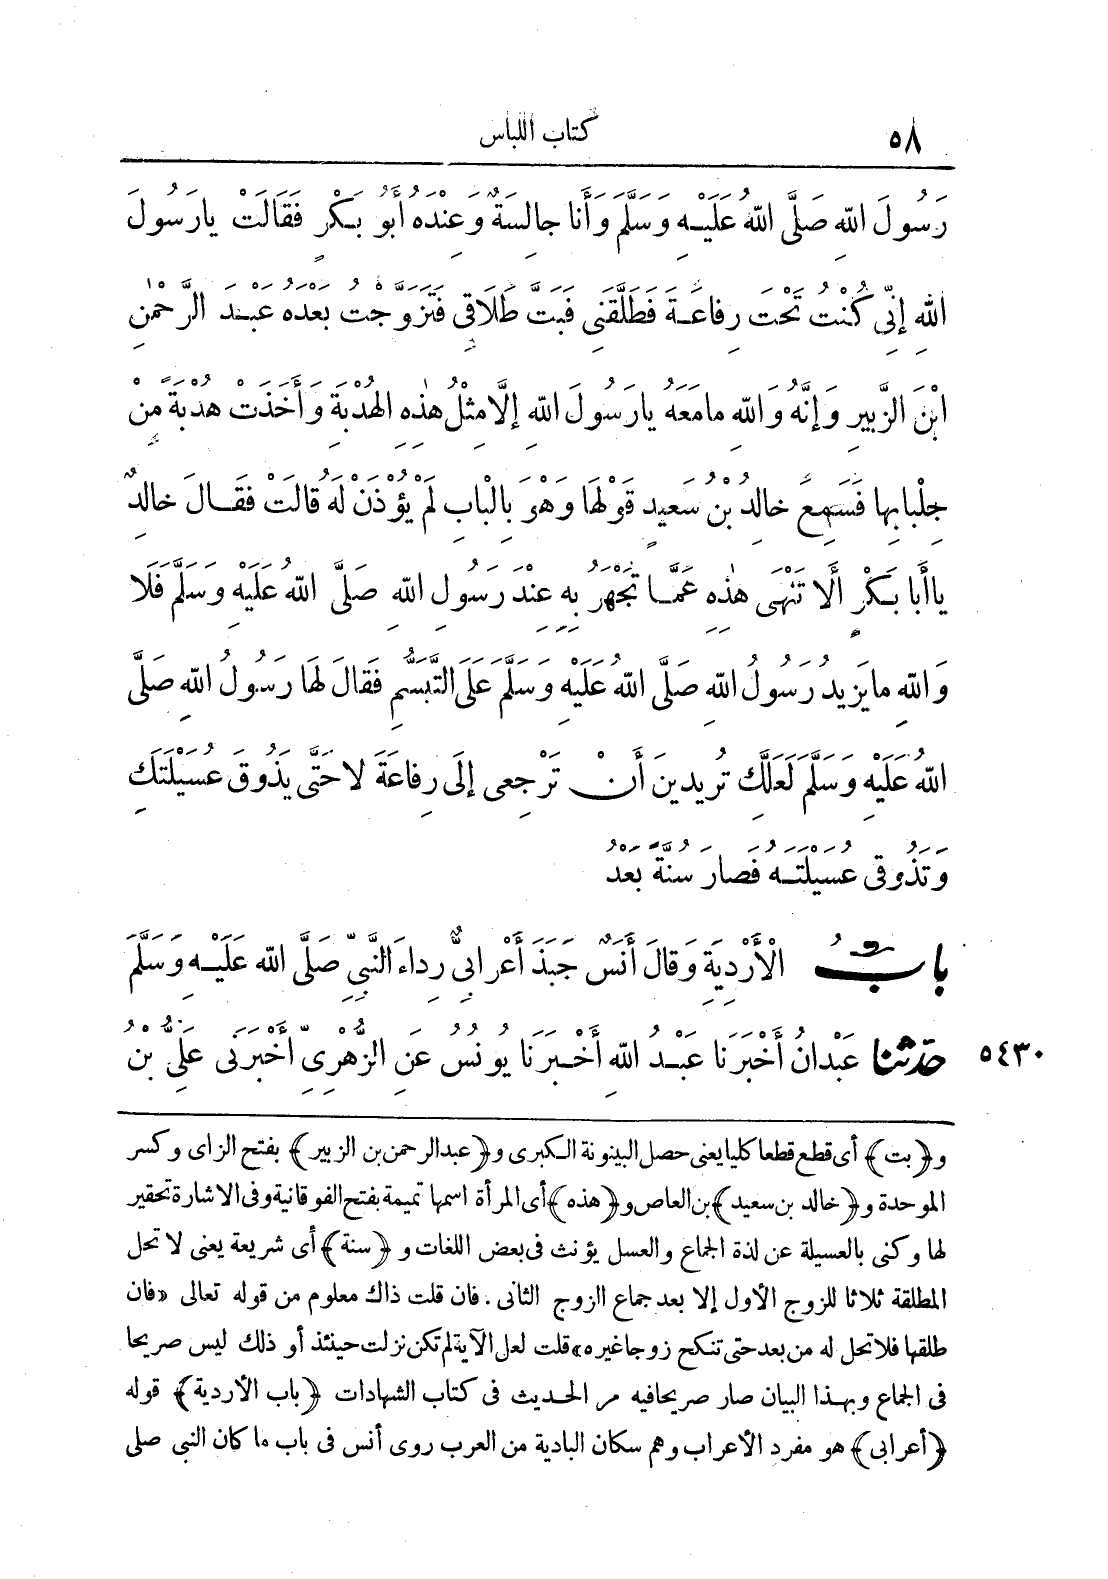 ٥٨
كتاب اللباس
رَسُولَ اللهِ صَلَّى اللهُ عَلَيْهِ وَسَلَّمَ وَأَنا جالِسَةٌ وَعِنْدَهُ أَبُو بَكْرٍ فَقَالَتْ يارَسُولَ
اللهِ إِنِّى كُنْتُ تَحْتَ رِفاعَةَ فَطَلَّقَنِى فَبَتَّ طَلَاقِى فَتَزَوَّجْتُ بَعْدَهُ عَبْدَ الرَّحْمٰنِ
ابْنَ الزَّبِيرِ وَإِنَّهُ وَاللهِ مامَعَهُ يارَسُولَ اللهِ إِلَّا مِثْلُ هٰذِهِ الْهُدْبَةِ وَأَخَذَتْ هُدْبَةً مِنْ
جِلْبابِها فَسَمِعَ خالِدُ بْنُ سَعِيدٍ قَوْلَها وَهْوَ بِالْبابِ لَمْ يُؤْذَنْ لَهُ قالَتْ فَقَالَ خالِدٌ
ياأَبا بَكْرٍ أَلَا تَنْهَى هٰذِهِ عَمَّا تَجْهَرُ بِهِ عِنْدَ رَسُولِ اللهِ صَلَّى اللهُ عَلَيْهِ وَسَلَّمَ فَلَا
وَاللهِ مايَزِيدُ رَسُولُ اللهِ صَلَّى اللهُ عَلَيْهِ وَسَلَّمَ عَلَى التَّبَسُّمِ فَقالَ لَها رَسُولُ اللهِ صَلَّى
اللهُ عَلَيْهِ وَسَلَّمَ لَعَلَّكِ تُرِيدِينَ أَنْ تَرْجِعِى إِلَى رِفاعَةَ لا حَتَّى يَذُوقَ عُسَيْلَتَكِ
وَتَذُوقِى عُسَيْلَتَهُ فَصارَ سُنَّةً بَعْدُ
بابُ الْأَرْدِيَةِ وَقالَ أَنَسٌ جَبَذَ أَعْرابِىٌّ رِداءَ النَّبِىِّ صَلَّى اللهُ عَلَيْهِ وَسَلَّمَ
٥٤٣٠ حدثنا عَبْدانُ أَخْبَرَنا عَبْدُ اللهِ أَخْبَرَنا يُونُسُ عَنِ الزُّهْرِىِّ أَخْبَرَنِى عَلِىُّ بْنُ
و﴿بت﴾ أى قطع قطعا كليا يعنى حصل البينونة الكبرى و﴿عبدالرحمن بن الزبير﴾ بفتح الزاى وكسر
الموحدة و﴿خالد بن سعيد﴾ بن العاص و﴿هذه﴾ أى المرأة اسمها تميمة بفتح الفوقانية وفى الاشارة تحقير
لها وكنى بالعسيلة عن لذة الجماع والعسل يؤنث فى بعض اللغات و﴿سنة﴾ أى شريعة يعنى لا تحل
المطلقة ثلاثا للزوج الأول إلا بعد جماع الزوج الثانى. فان قلت ذاك معلوم من قوله تعالى «فان
طلقها فلا تحل له من بعد حتى تنكح زوجا غيره» قلت لعل الآية لم تكن نزلت حينئذ أو ذلك ليس صريحا
فى الجماع وبهذا البيان صار صريحا فيه مر الحديث فى كتاب الشهادات ﴿باب الأردية﴾ قوله
﴿أعرابى﴾ هو مفرد الأعراب وهم سكان البادية من العرب روى أنس فى باب ما كان النبى صلى